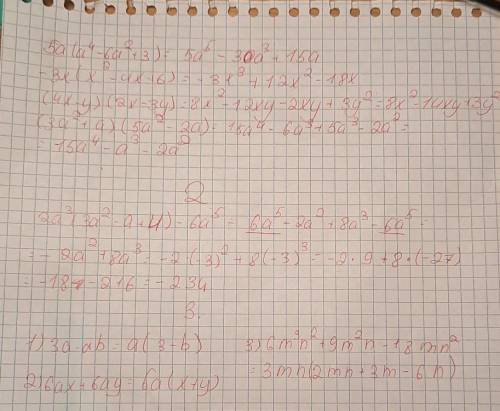 5a(a⁴-6a²+3) = 5a⁵-30a³+15a
-3x(x²-4x+6) = -3x³+12x²-18x
(4x-y)(2x-3y)=8x²-12xy-2xy+3y²=8x²-14xy+3y²
(3a²+a)(5a²-2a)=15a⁴-6a³+5a³-2a²=
=15a⁴-a³-2a²
2
2a³(3a²-a+4)-6a⁵= 6a⁵-2a²+8a³-6a⁵=
=-2a²+8a³=-2·(-3)²+8(-3)³=-2·9+8·(-27)
=-18-216=-234
3.
1) 3a-ab=a(3-b)
2) 6ax+6ay=6a(x+y)
3) 6m²n²+9m²n-18mn²
=3mn(2mn+3m-6n)